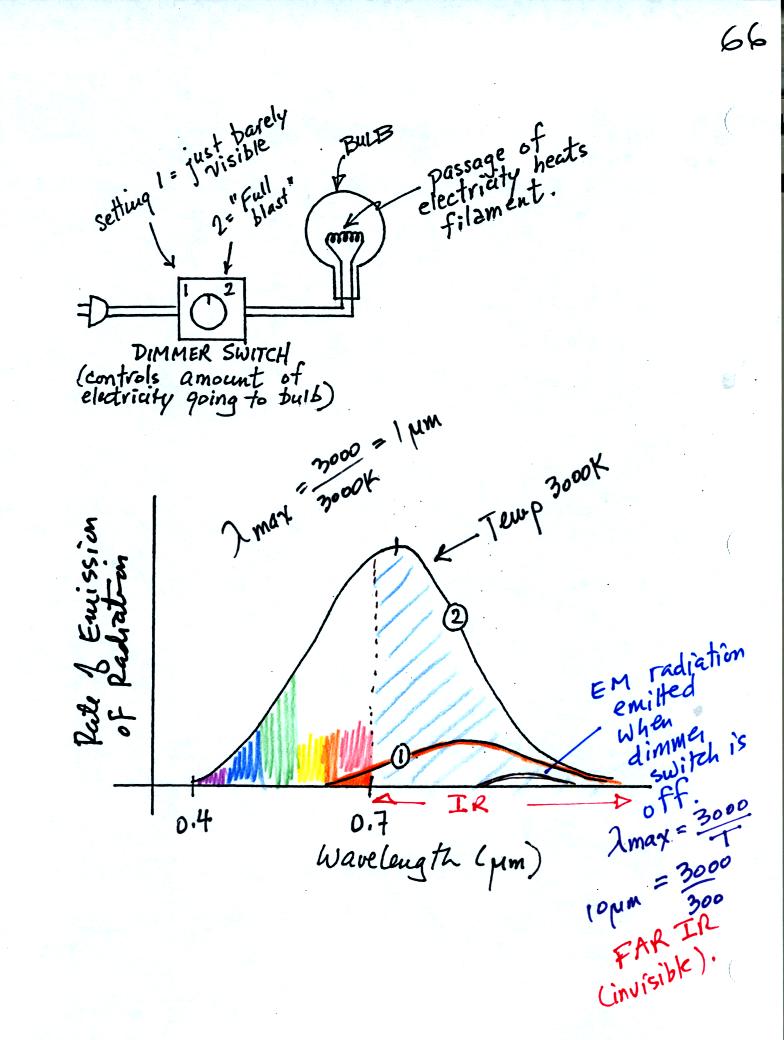 66
Setting 1 = just barely
visible
2 = "Full
blast"
BULB
passage of
electricity heats
filament.
1 2
DIMMER SWITCH
(controls amount of
electricity going to bulb)
λmax = 3000 / 3000K = 1 μm
Temp 3000K
Rate of Emission
of Radiation
2
1
EM radiation
emitted
when
dimmer
switch is
off.
IR
0.4 0.7
Wavelength (μm)
λmax = 3000 / T
10 μm = 3000 / 300
FAR IR
(invisible).